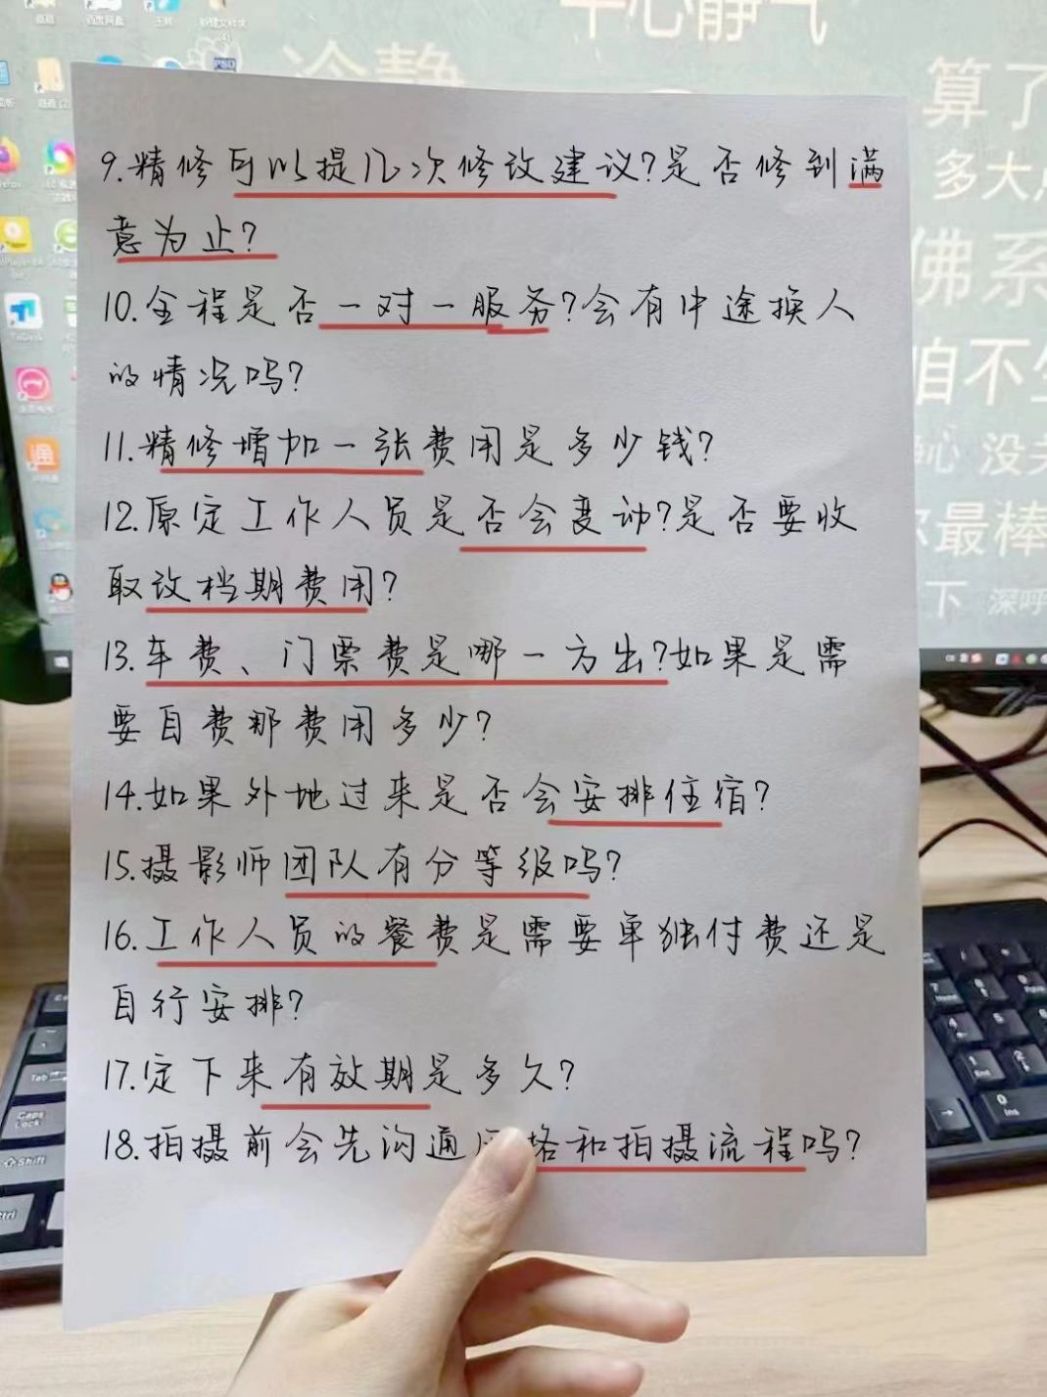 平心静气
冷静
算了
多大点
佛系
咱不生
最棒
深呼
9.精修可以提几次修改建议?是否修到满
意为止?
10.全程是否一对一服务?会有中途换人
的情况吗?
11.精修增加一张费用是多少钱?
12.原定工作人员是否会变动?是否要收
取改档期费用?
13.车费、门票费是哪一方出?如果是需
要自费那费用多少?
14.如果外地过来是否会安排住宿?
15.摄影师团队有分等级吗?
16.工作人员的餐费是需要单独付费还是
自行安排?
17.定下来有效期是多久?
18.拍摄前会先沟通风格和拍摄流程吗?
Tab
Caps
Lock
Shift
Ctrl
7
4
1
0
Ins